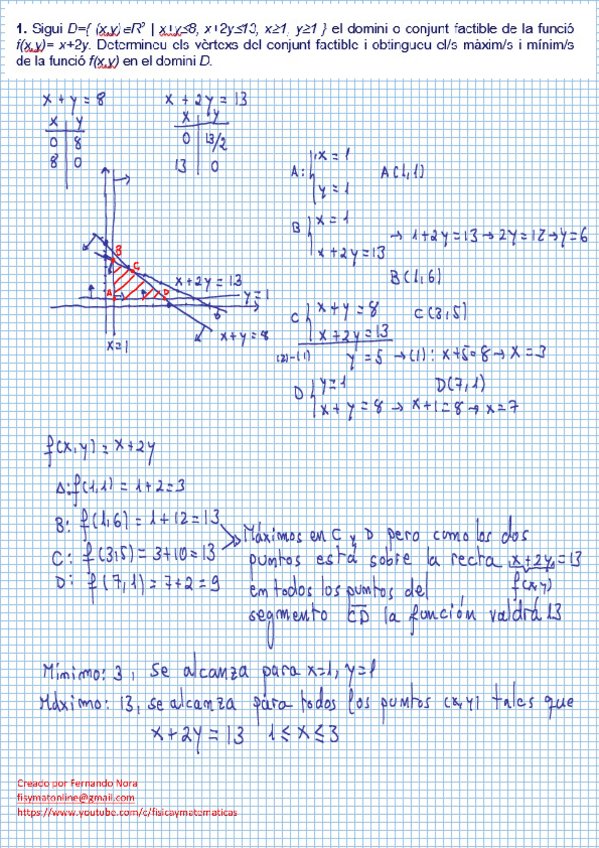 1. Sigui D={ (x,y)∈R² | x+y≤8, x+2y≤13, x≥1, y≥1 } el domini o conjunt factible de la funció
f(x,y)= x+2y. Determineu els vèrtexs del conjunt factible i obtingueu el/s màxim/s i mínim/s
de la funció f(x,y) en el domini D.
x + y = 8
x + 2y = 13
x y
0 8
8 0
x y
0 13/2
13 0
A: { x = 1
y = 1
A(1,1)
B { x = 1
x + 2y = 13
→ 1+2y = 13 → 2y = 12 → y = 6
B(1,6)
C { x + y = 8
x + 2y = 13
C(3,5)
(2)-(1) y = 5 → (1): x+5=8 → x = 3
D { y = 1
x + y = 8 → x+1 = 8 → x = 7
D(7,1)
B
C
A
D
x + 2y = 13
y = 1
x + y = 8
x = 1
f(x,y) = x+2y
A: f(1,1) = 1+2 = 3
B: f(1,6) = 1+12 = 13
C: f(3,5) = 3+10 = 13
D: f(7,1) = 7+2 = 9
Máximos en C y D pero como los dos
puntos está sobre la recta x+2y = 13
f(x,y)
em todos los puntos del
segmento CD la función valdrá 13
Mínimo: 3, Se alcanza para x=1, y=1
Máximo: 13, se alcanza para todos los puntos (x,y) tales que
x + 2y = 13 1 ≤ x ≤ 3
Creado por Fernando Nora
fisymatonline@gmail.com
https://www.youtube.com/c/fisicaymatematicas